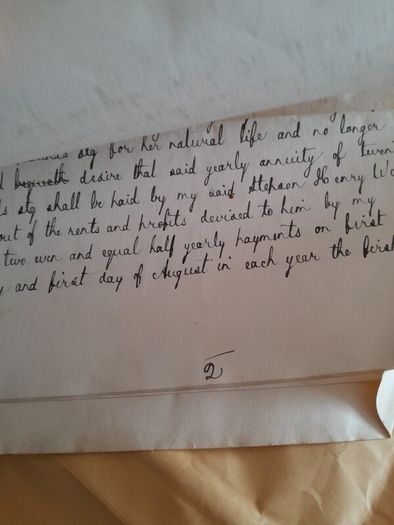 stg for her natural life and no longer
bequeath desire that said yearly annuity of twen
stg shall be paid by my said Stepson Henry Wo
out of the rents and profits devised to him by my
two even and equal half yearly payments on first
and first day of August in each year the first
2